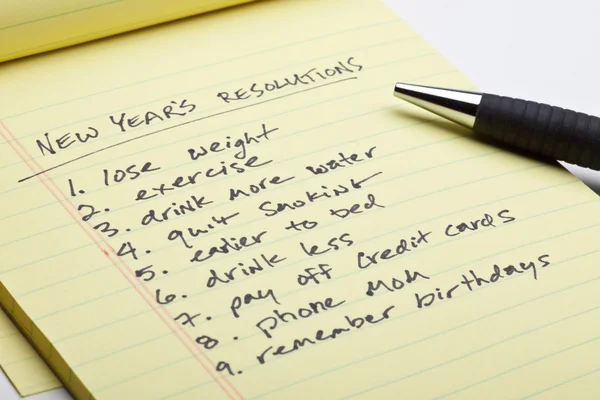 NEW YEAR'S RESOLUTIONS
1. lose weight
2. exercise
3. drink more water
4. quit smoking
5. earlier to bed
6. drink less
7. pay off credit cards
8. phone mom
9. remember birthdays